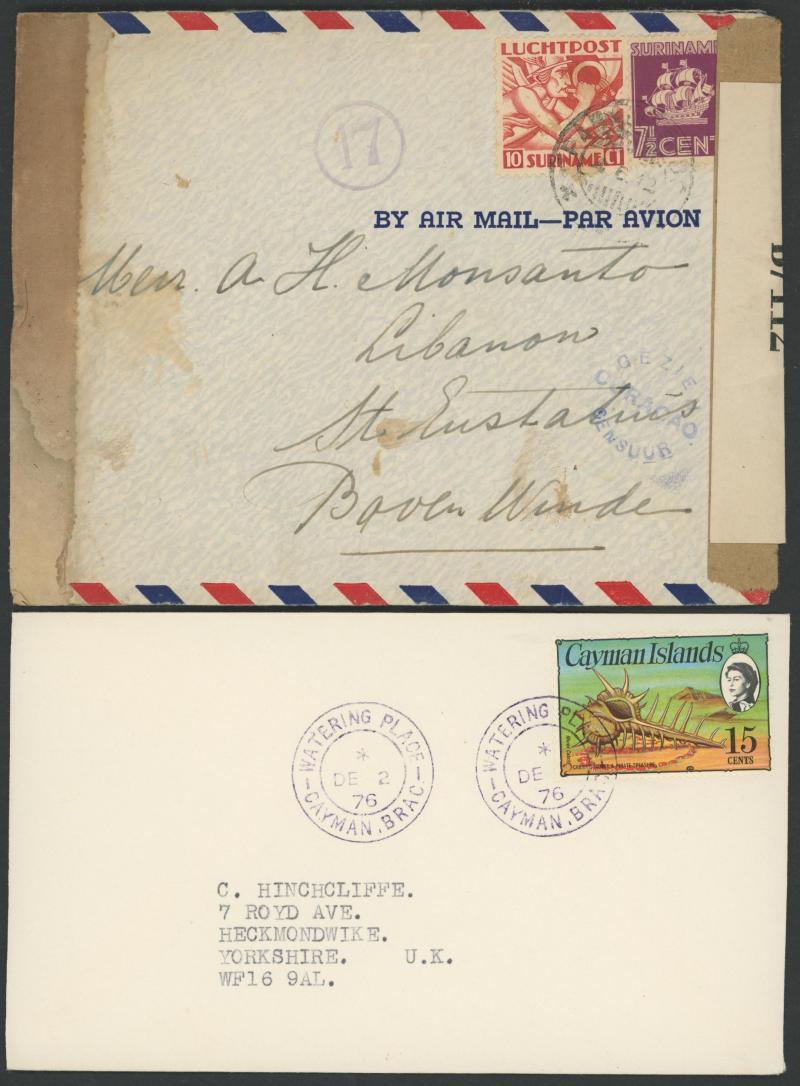 LUCHTPOST
10 SURINAME CT
SURINAME
7½ CENT
17
BY AIR MAIL—PAR AVION
D/112
A. H. Monsanto
Libanon
St. Eustatius
Boven Winde
GEZIEN
CURAÇAO.
CENSUUR
Cayman Islands
15
CENTS
WATERING PLACE
*
DE 2
76
CAYMAN BRAC
WATERING PLACE
*
DE
76
CAYMAN BRAC
C. HINCHCLIFFE.
7 ROYD AVE.
HECKMONDWIKE.
YORKSHIRE. U.K.
WF16 9AL.